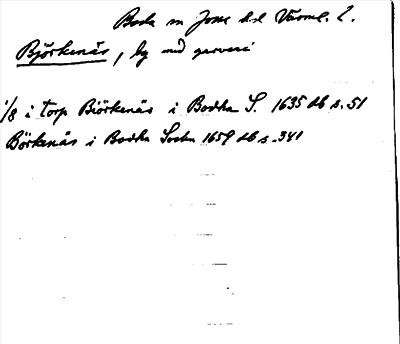 Boda sn Jösse hd Värml. L.
Björkenäs, by med garveri
1/8 i torp Biörkenäs i Bodha S. 1635 db s. 51
Börkenäs i Bodha Sockn 1659 db s. 341